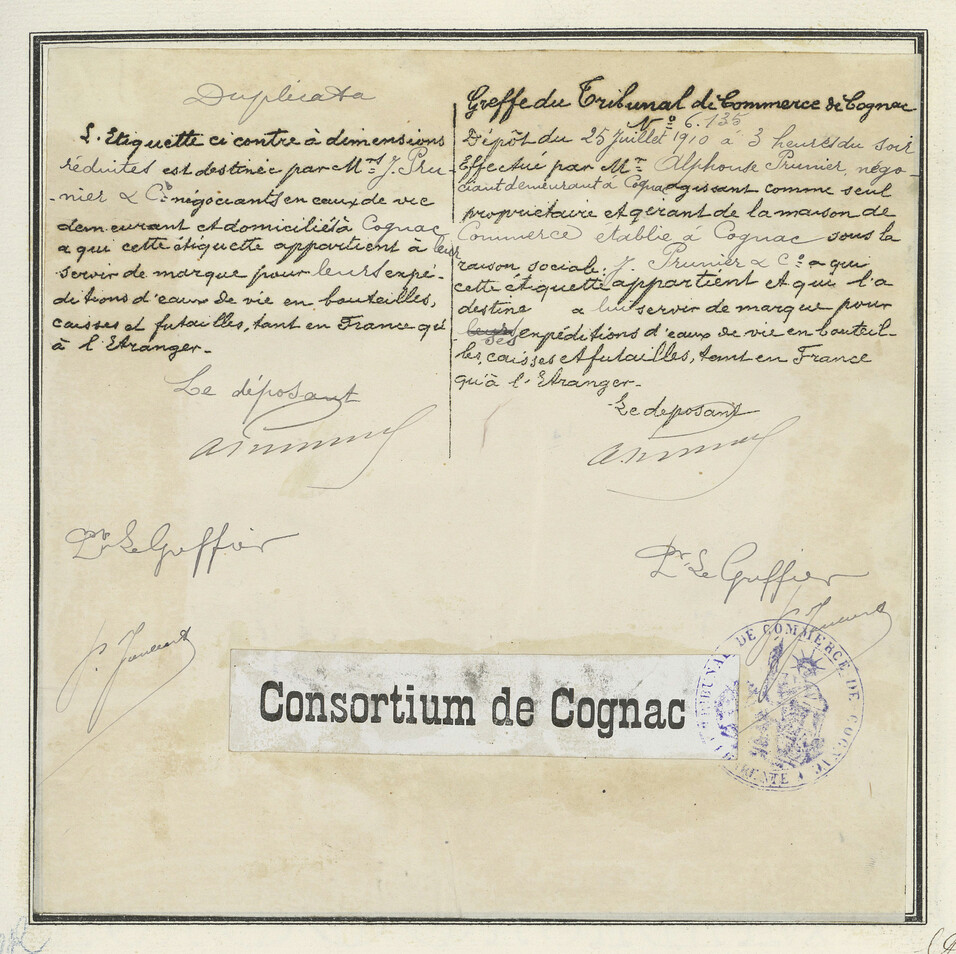 Duplicata
L'Etiquette ci contre à dimensions
réduites est destinée par Mrs J. Pru-
-nier & Cº négociants en eaux de vie
demeurant et domiciliés à Cognac
a qui cette étiquette appartient à leur
servir de marque pour leurs expé-
ditions d'eaux de vie en bouteilles,
caisses et futailles, tant en France qu'
à l'Etranger.-
Le déposant
Pr Le Greffier
Greffe du Tribunal de Commerce de Cognac
Nº 6.135
Dépôt du 25 Juillet 1910 à 3 heures du soir
Effectué par Mr Alphonse Prunier, négo-
ciant demeurant à Cognac agissant comme seul
propriétaire et gérant de la maison de
Commerce etablie à Cognac sous la
raison sociale: J. Prunier & Cº a qui
cette étiquette appartient et qui l'a
destine a lui servir de marque pour
leurs ses expéditions d'eaux de vie en bouteil-
les, caisses et futailles, tant en France
qu'à l'Etranger.-
Le deposant
Pr Le Greffier
Consortium de Cognac
TRIBUNAL DE COMMERCE DE COGNAC
CHARENTE